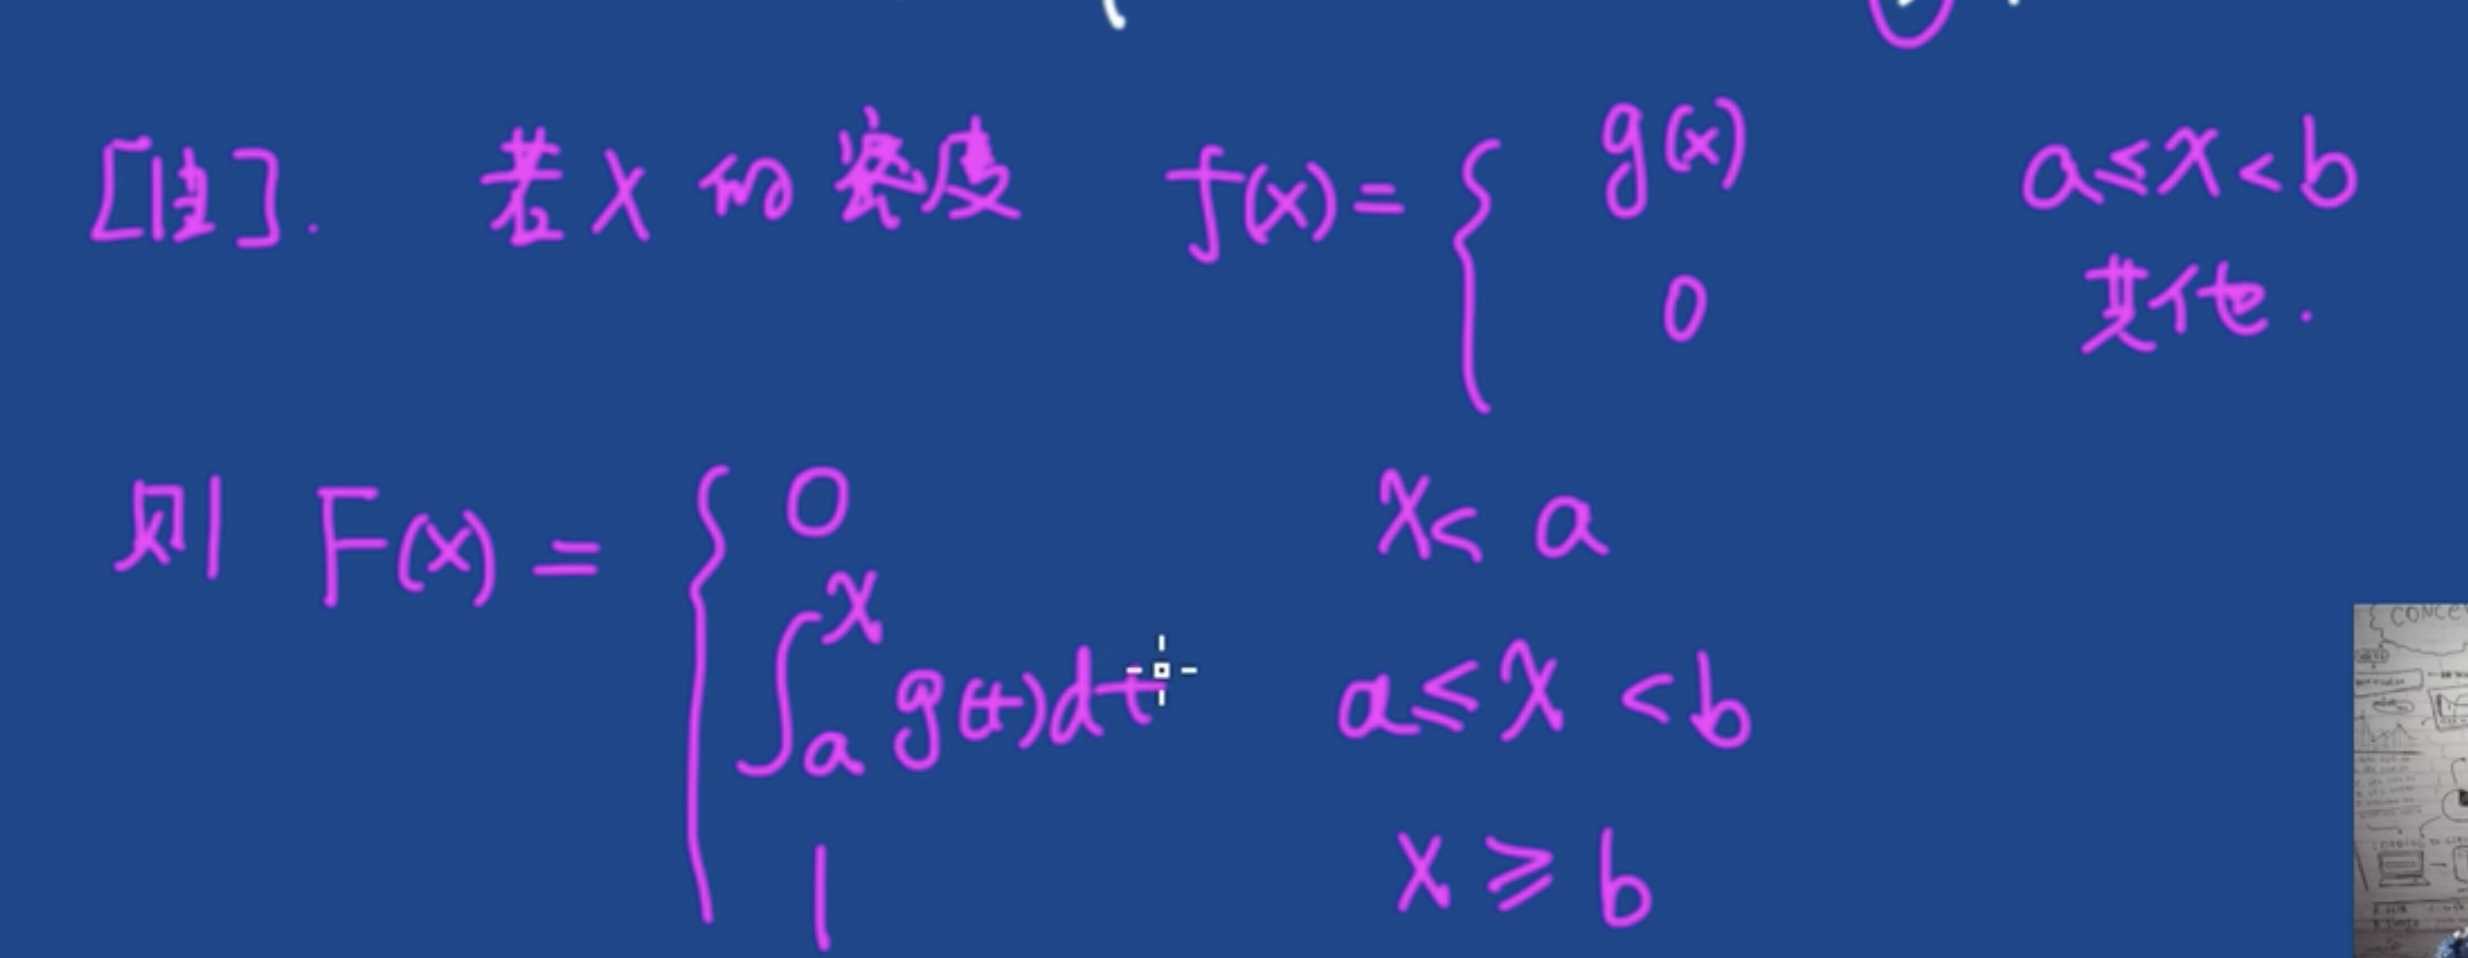 [注]. 若X的密度 f(x)= { g(x) a≤x<b
0 其他.
则 F(x) = { 0 x< a
∫ₐˣ g(t)dt a≤x <b
1 x ≥ b
CONCE